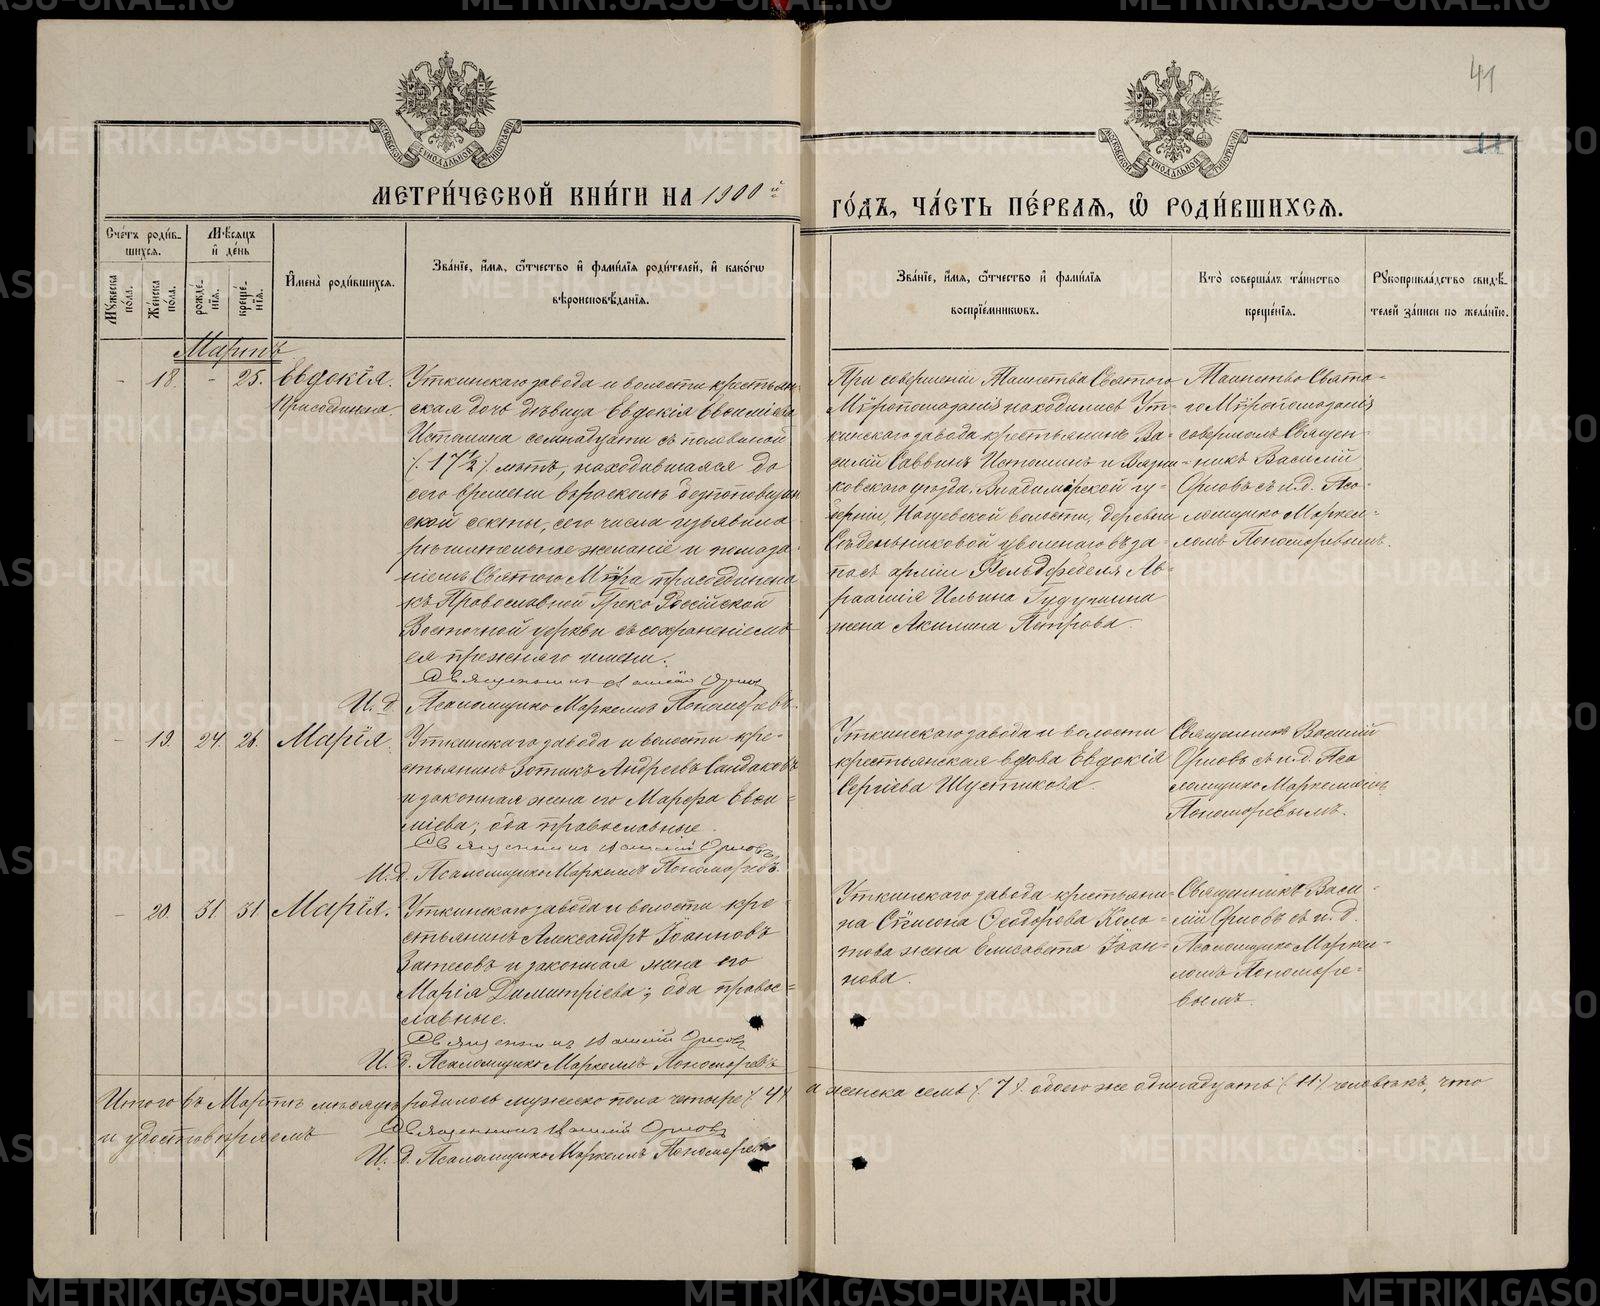 41
11
МЕТРИ́ЧЕСКОЙ КНИ́ГИ НА 1900й
ГО́ДЪ, ЧА́СТЬ ПЕ́РВАѦ, Ѿ РОДИ́ВШИХСѦ.
Сче́тъ роди́в-
шихсѧ.
Мꙋжеска
по́ла.
Же́нска
по́ла.
М҃ѣсѧцъ
и҆ де́нь
рожде́-
нїѧ.
креще́-
нїѧ.
И҆мена̀ роди́вшихсѧ.
Зва́нїе, и҆́мѧ, ѻ҆́тчество и҆ фами́лїѧ роди́телей, и҆ како́гѡ
вѣроисповѣ́данїѧ.
Зва́нїе, и҆́мѧ, ѻ҆́тчество и҆ фами́лїѧ
воспрїе́мникѡвъ.
Кто̀ соверша́лъ та́инство
креще́нїѧ.
Рꙋкоприкла́дство свидѣ́-
телей за́писи по жела́нїю.
Мартъ
- 18. - 25. Евдокія.
Присоединена.
Уткинскаго завода и волости крестьян-
ская дочь дѣвица Евдокія Евѳиміева
Истомина семнадцати съ половиной
(17½) лѣтъ, находившаяся до
сего времени въ расколѣ безпоповщин-
ской секты, сего числа изъявила
рѣшительное желаніе и помаза-
ніемъ Святого Мѵра присоединена
къ Православной Греко-Россійской
Восточной церкви съ сохраненіемъ
ея прежняго имени.
Священникъ Василій Орловъ
И. д. Псаломщика Маркеллъ Пономаревъ.
При совершеніи Таинства Святого
Мѵропомазанія находились Ут-
кинскаго завода крестьянинъ Ва-
силій Саввинъ Истоминъ и Вязни-
ковскаго уѣзда, Владимірской гу-
берніи, волости, деревни
уволенаго въ за-
пасъ арміи Фельдфебеля Ав-
раамія Ильина
жена Акилина Петрова.
Таинство Свято-
го Мѵропомазанія
совершалъ Священ-
никъ Василій
Орловъ съ и.д. Пса-
ломщика Маркел-
ломъ Пономаревымъ.
- 19. 24. 26. Марія.
Уткинскаго завода и волости кре-
стьянинъ Зотикъ Андреевъ Сандаковъ
и законная жена его Марѳа Евѳи-
міева; оба православные.
Священникъ Василій Орловъ
И. д. Псаломщика Маркеллъ Пономаревъ.
Уткинскаго завода и волости
крестьянская вдова Евдокія
Сергіева Шустикова.
Священникъ Василій
Орловъ съ и.д. Пса
ломщика Маркелломъ
Пономаревымъ.
- 20. 31 31 Марія.
Уткинскаго завода и волости кре-
стьянинъ Александръ Іоанновъ
Затесовъ и законная жена его
Марія Димитріева; оба правос-
лавные.
Священникъ Василій Орловъ
И. д. Псаломщика Маркеллъ Пономаревъ
Уткинскаго завода крестьяни-
на Сѵмеона Ѳеодорова Кола-
това жена Елисавета Іоан-
нова.
Священникъ Васи-
лій Орловъ съ и. д.
Псаломщика Маркел-
ломъ Пономаре-
вымъ.
Итого въ Мартѣ мѣсяцѣ родилось мужеска пола четыре (4) а женска семь (7) обоего же одинадцать (11) человѣкъ, что
и удостовѣряемъ
Священникъ Василій Орловъ
И. д. Псаломщика Маркеллъ Пономаревъ